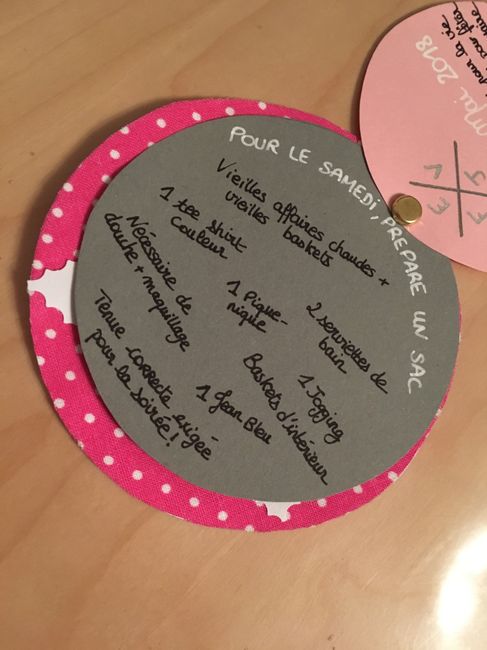 POUR LE SAMEDI, PREPARE UN SAC
Vieilles affaires chaudes +
vieilles baskets
1 tee shirt
couleur
Nécessaire de
douche + maquillage
1 Pique-
nique
2 serviettes de
bain
1 Jogging
Baskets d'intérieur
1 Jean Bleu
Tenue correcte exigée
pour la soirée !
pour la vie
pour fêter
mai 2018